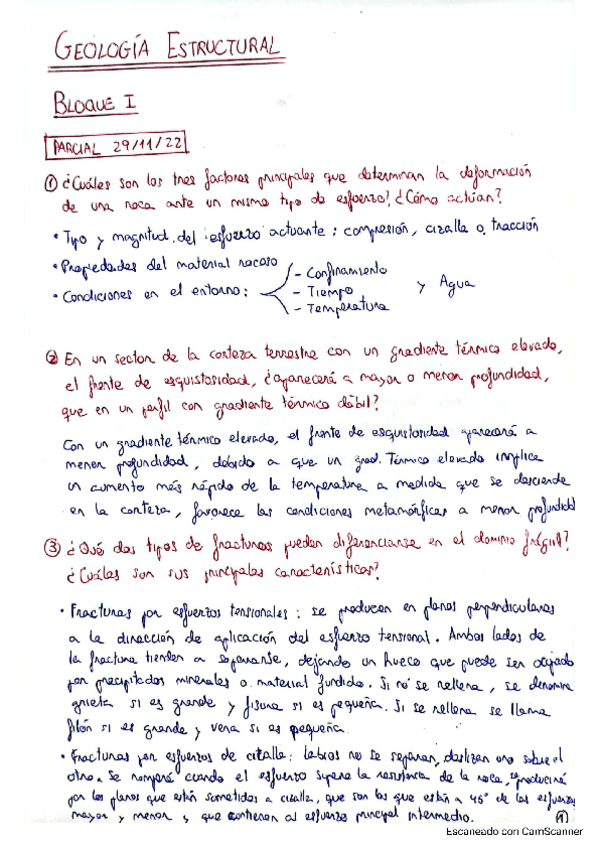 GEOLOGÍA ESTRUCTURAL
BLOQUE I
PARCIAL 29/11/22
① ¿Cuáles son los tres factores principales que determinan la deformación
de una roca ante un mismo tipo de esfuerzo? ¿Cómo actúan?
• Tipo y magnitud del esfuerzo actuante: compresión, cizalla o tracción
• Propiedades del material rocoso
• Condiciones en el entorno:
- Confinamiento
- Tiempo
- Temperatura
y Agua
② En un sector de la corteza terrestre con un gradiente térmico elevado,
el frente de esquistosidad, ¿aparecerá a mayor o menor profundidad,
que en un perfil con gradiente térmico débil?
Con un gradiente térmico elevado, el frente de esquistosidad aparecerá a
menor profundidad, debido a que un grad. Térmico elevado implica
un aumento más rápido de la temperatura a medida que se desciende
en la corteza, favorece las condiciones metamórficas a menor profundidad
③ ¿Qué dos tipos de fracturas pueden diferenciarse en el dominio frágil?
¿Cuáles son sus principales características?
• Fracturas por esfuerzos tensionales: se producen en planos perpendiculares
a la dirección de aplicación del esfuerzo tensional. Ambos lados de
la fractura tienden a separarse, dejando un hueco que puede ser ocupado
por precipitados minerales o material fundido. Si no se rellena, se denomina
grieta si es grande y fisura si es pequeña. Si se rellena se llama
filón si es grande y vena si es pequeña.
• Fracturas por esfuerzos de cizalla: labios no se separan, deslizan uno sobre el
otro. Se romperá cuando el esfuerzo supere la resistencia de la roca,
por los planos que están sometidos a cizalla, que son los que están a 45° de los esfuerzos
mayor y menor, y que contienen al esfuerzo principal intermedio.
①
Escaneado con CamScanner